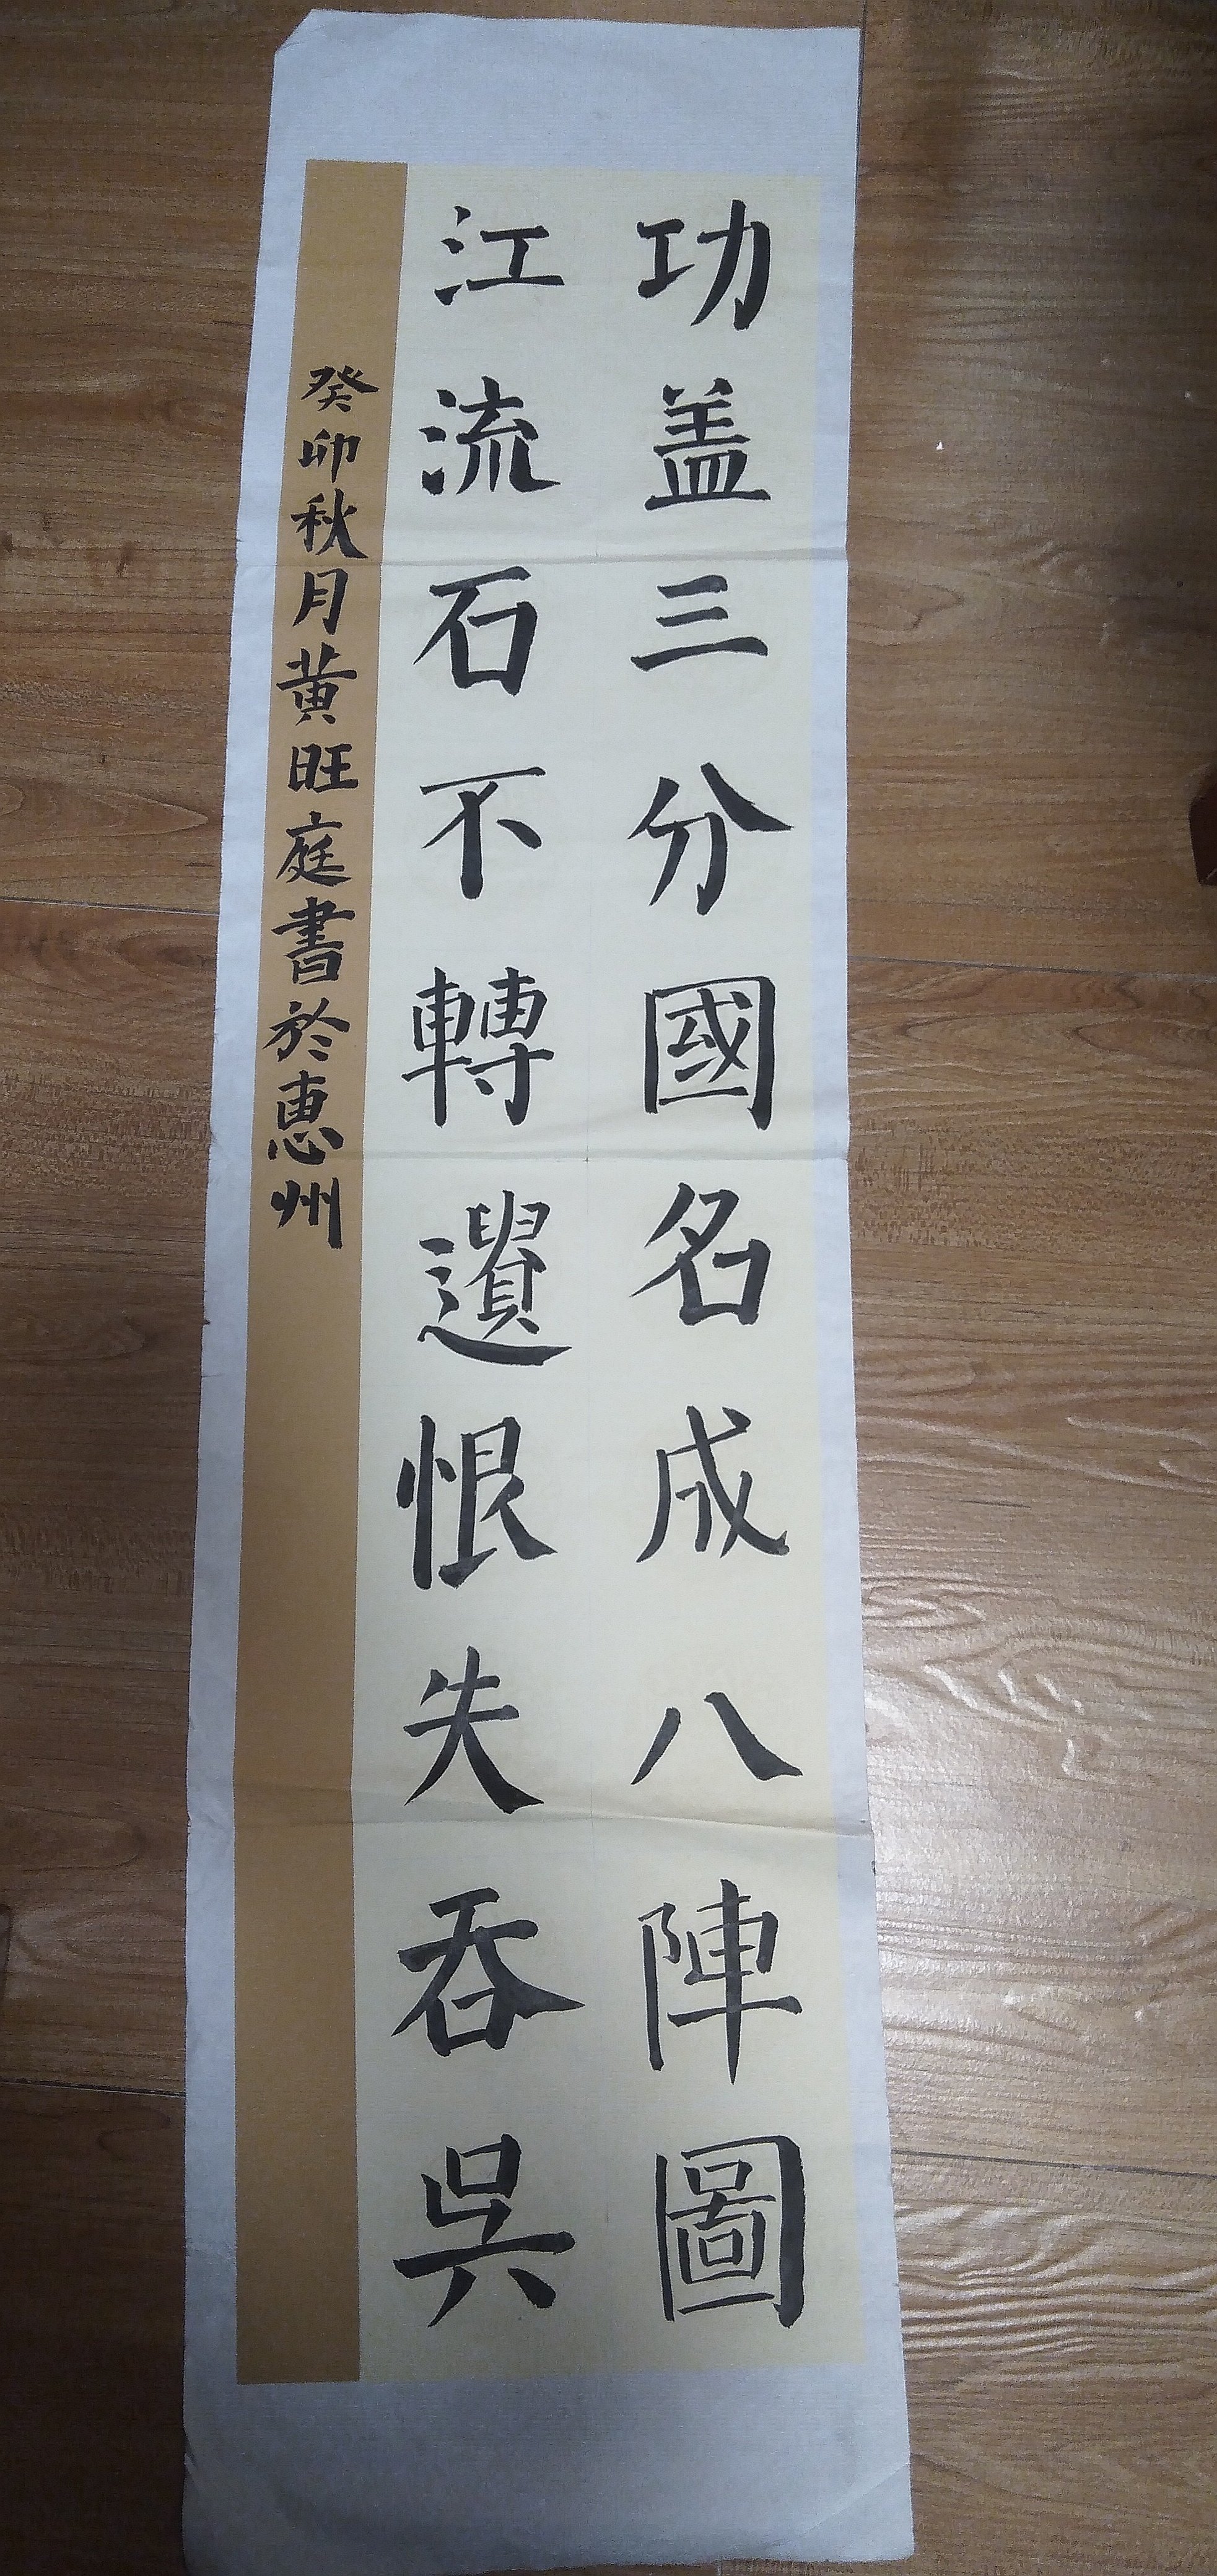 功盖三分國名成八陣圖
江流石不轉遺恨失吞吳
癸卯秋月黄旺庭書於惠州